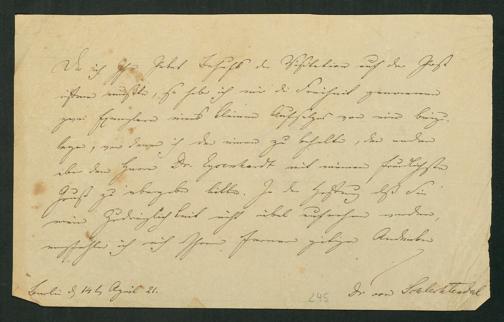 Da ich Ihr Paket Behufs der Visitation auf der Post
öffnen mußte, so habe ich mir die Freiheit genommen
zwei Exemplare eines kleinen Aufsatzes von mir beizu-
legen, von denen ich den einen zu behalten, den andern
aber dem Herrn Dr. mit meinem freundlichsten
Gruß zu übergeben bitte. In der Hoffnung daß Sie
meine Zudringlichkeit nicht übel aufnehmen werden,
empfehle ich mich Ihrem ferneren gütigen Andenken
Berlin d 14 April 21.
245
Dr. von Schlechtendal